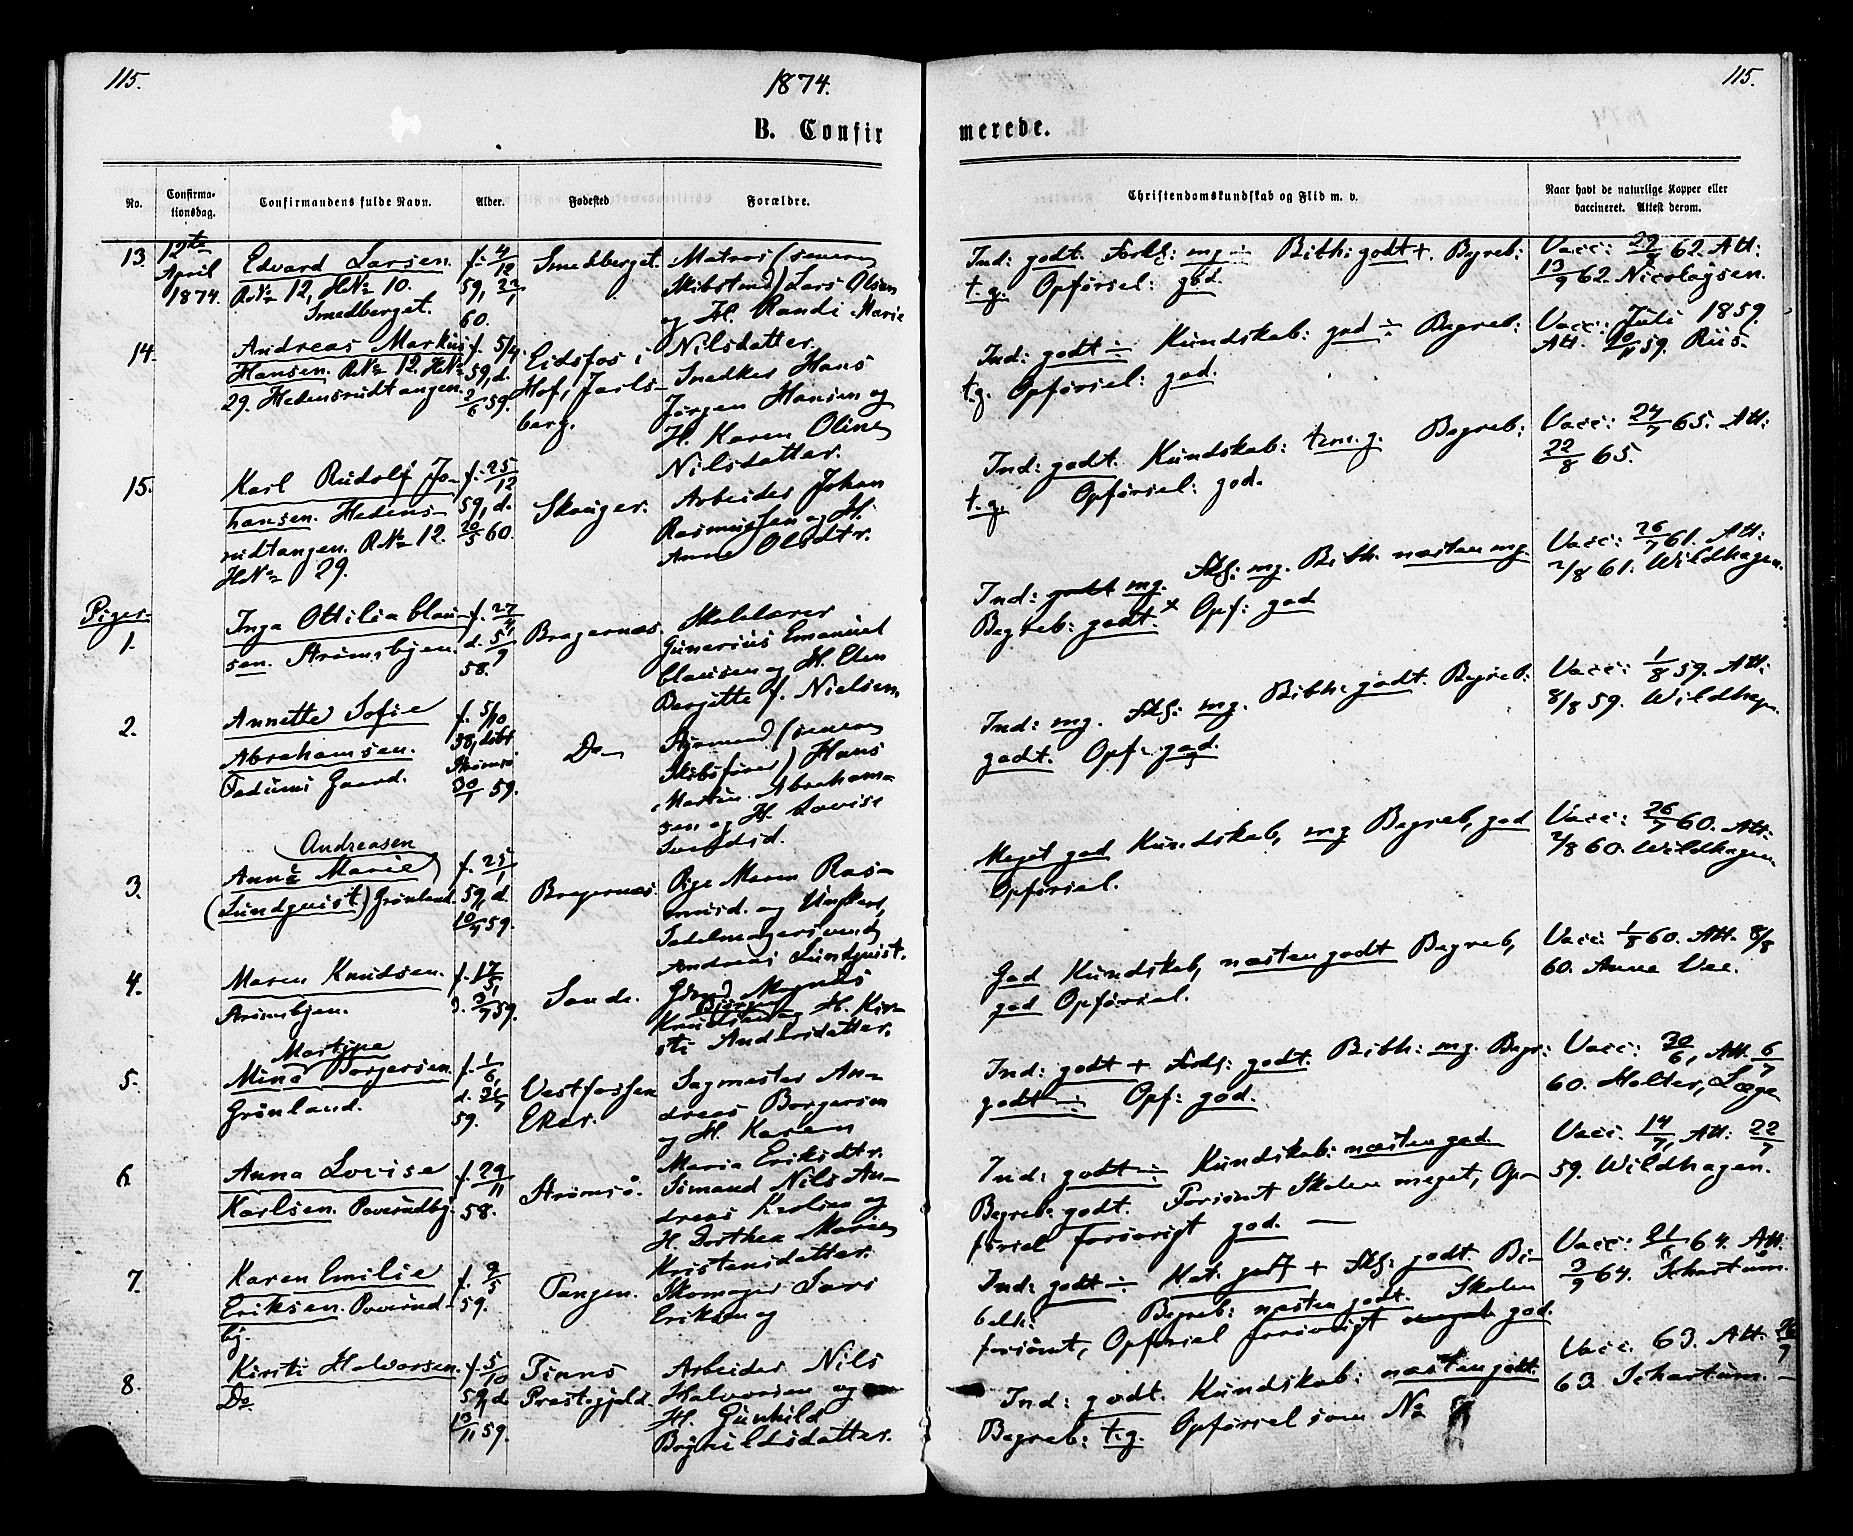 115.
1874.
115.
B. Confirmerede.
No.
Confirmationsdag.
Confirmandens fulde Navn.
Alder.
Fødested
Forældre.
Christendomskundskab og Flid m. v.
Naar havt de naturlige Kopper eller vaccineret. Attest derom.
13.
12te
April
1874.
Edvard Larsen.
RNo 12, HNo 10.
Smedberget.
f. 4/12
59, 22/1
60.
Smedberget.
Matros (senere
Skibstmd) Lars Olsen
og H. Randi Marie
Nilsdatter.
Ind: godt. Forkl: mg ÷ Bibh: godt +. Begreb:
t. g. Opførsel: god.
62. Att:
13/9 62. Nicolaysen.
14.
Andreas Markus
Hansen. RNo 12. HNo
29. Hedensrudtangen.
f. 5/4
59, d.
2/6 59.
Eidsfos i
Hof, Jarls-
berg.
Snedker Hans
Jørgen Hansen og
H. Karen Oline
Nilsdatter.
Ind: godt ÷ Kundskab: god ÷ Begreb:
t.g. Opførsel: god.
Vacc: Juli 1859.
Att. 59. Riis.
15.
Karl Rudolf Jo-
hansen. Hedens-
rudtangen. RNo 12.
HNo 29.
f. 25/12
59, d.
20/5 60.
Skouger.
Arbeider Johan
Rasmussen og H.
Anne Olsdtr.
Ind: godt. Kundskab: tem. g. Begreb:
t. g. Opførsel: god.
Vacc: 24/7 65. Att:
22/8 65.
Piger.
1.
Inga Ottilia Clau-
sen. Strømsbyen.
f. 27/4
d. 5/9
58.
Bragernæs.
Skolelærer
Gunerius Emanuel
Clausen og H. Elen
Bergitte f. Nielsen.
Ind: godt mg. Fkl: mg. Bibh. næsten mg.
Begreb: godt. + Opf: god
Vacc: 26/7 61. Att:
2/8 61. Wildhagen.
2.
Annette Sofie
Abrahamsen.
Gaard.
f. 5/10
58, døbt
Strømsø
30/1 59.
Do
Styrmand (senere
Skibsfører) Hans
Martin Abraham-
sen og H. Lovise
Ind: mg. Fkl: mg. Bibh: godt. Begreb:
godt. Opf: god.
Vacc: 1/8 59. Att:
8/8 59. Wildhagen.
3.
Andreasen
Anna Marie
(Lundquist) Grønland.
f. 25/1
59, d.
10/4 59.
Bragernæs.
Pige Maren Ras-
musd. og Ungkarl,
Sadelmagersvend
Andreas Lundquist.
Meget god Kundskab, mg Begreb, god
Opførsel.
Vacc: 26/7 60. Att:
2/8 60. Wildhagen
4.
Maren Knudsen.
Strømsbyen.
f. 17/5,
d. 3/7 59.
Sande.
Gbrd Magnus
Knudsen og H. Kir-
sti Andersdatter.
God Kundskab, næsten godt Begreb,
god Opførsel.
Vacc: 1/8 60. Att. 8/8
60. Anne Vee.
5.
Martine
Mina Borgersen.
Grønland.
f. 1/6,
d. 31/7
59.
Vestfossen
Eker.
Sagmester An-
dreas Borgersen
og H. Karen
Maria Eriksdtr.
Ind: godt + Fkl: godt. Bibh: mg. Begr:
godt ÷ Opf: god.
Vacc: 30/6, Att. 6/7
60. Holter, Læge
6.
Anna Lovise
Karlsen. Poverudbj.
f. 29/11
58.
Strømsø.
Sømand Nils An-
dreas Karlsen og
H. Dorthea Marie
Kristensdatter.
Ind: godt ÷ Kundskab: næsten god.
Begreb: godt. Forsømt Skolen meget, Op-
førsel forøvrigt god. —
Vacc. 14/7, Att: 22/7
59. Wildhagen.
7.
Karen Emilie
Eriksen. Poverud-
bj.
f. 9/5
59.
Tangen.
Skomager Lars
Eriksen og
Ind: godt ÷ Kat. godt + Fkl: godt. Bi-
belh: Begreb: næsten godt. Skolen
forsømt, Opførsel forøvrigt meget god.
Vacc: 64. Att.
3/9 64. Schartum.
8.
Kirsti Halvorsen.
Do
f. 5/10
59, d.
13/11 59.
Tinns
Præstegjeld.
Arbeider Nils
Halvorsen og
H. Gunhild
Ind: godt. Kundskab: næsten godt.
Begreb: t.g. Opførsel som No
Vacc. 63. Att.
63. Schartum. —